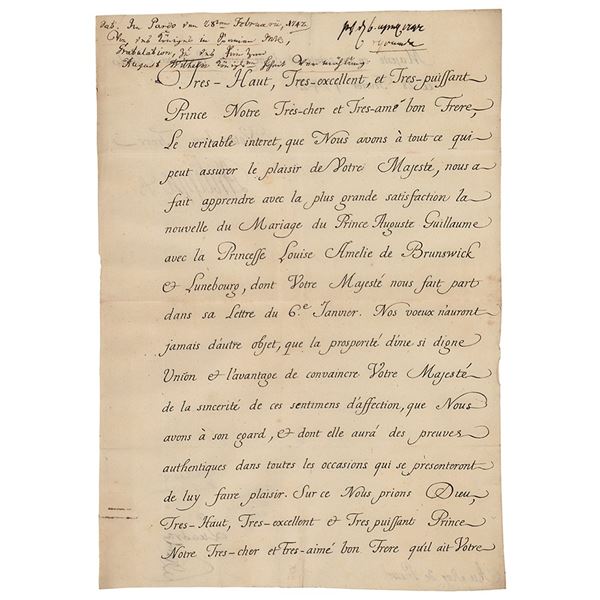 dat. In Pardo den 28ten Februarii, 1742.
Von des Königes in
Gratulation, zu des
August Wilhelm
Tres-Haut, Tres-excellent, et Tres-puissant
Prince Notre Tres-cher et Tres-amé bon Frere,
Le veritable interet, que Nous avons à tout ce qui
peut assurer le plaisir de Votre Majesté, nous a
fait apprendre avec la plus grande satisfaction la
nouvelle du Mariage du Prince Auguste Guillaume
avec la Princesse Louise Amelie de Brunswick
& Lunebourg, dont Votre Majesté nous fait part
dans sa Lettre du 6.e Janvier. Nos voeux n'auront
jamais d'autre objet, que la prosperité d'une si digne
Union & l'avantage de convaincre Votre Majesté
de la sincerité de ces sentimens d'affection, que Nous
avons à son egard, & dont elle aurá des preuves
authentiques dans toutes les occasions qui se presenteront
de luy faire plaisir. Sur ce Nous prions Dieu,
Tres-Haut, Tres-excellent & Tres puissant Prince
Notre Tres-cher et Tres-aimé bon Frere qu'il ait Votre